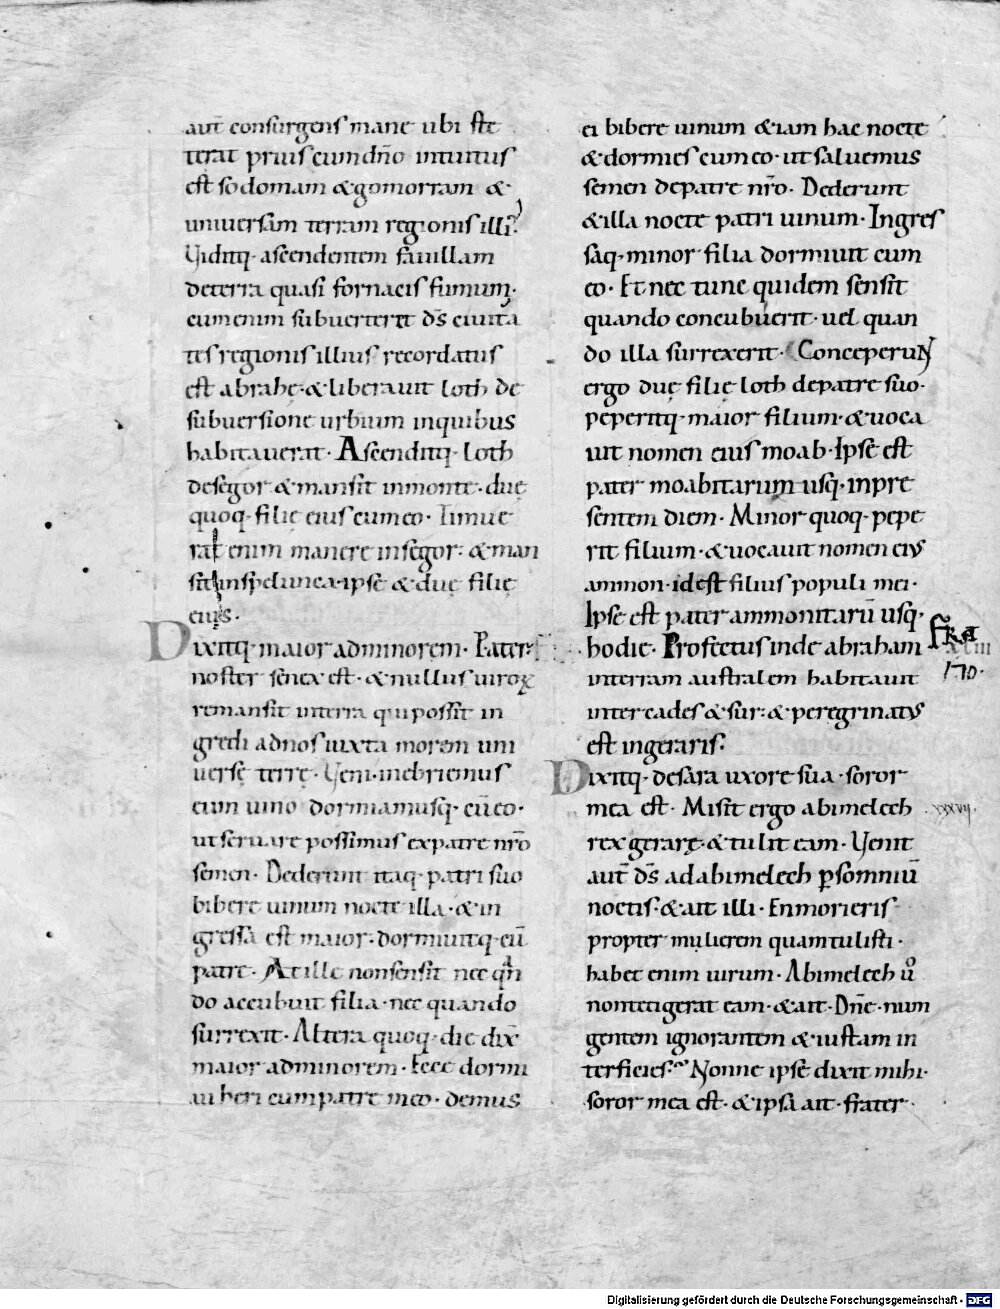 aut̄ consurgens mane ubi ste
terat prius cum dño intuitus
est sodomam &gomorram &
universam terram regionis illi?
Uiditq· ascendentem fauillam
deterra quasi fornacis fumum·
cum enim subuerteret d̄s ciuita
tes regionis illius recordatus
est abrahę·&liberauit loth de
subuersione urbium inquibus
habitauerat· Ascenditq· loth
desegor &mansit inmonte· duę
quoq· filię eius cumeo· Timue
rat enim manere insegor: &man
sit inspelunca·ipse & duę filię
eius·
Dixitq· maior adminorem· Pater
noster senex est·&nullus uiroꝝ
remansit interra qui possit in
gredi adnos iuxta morem uni
uersę terrę· Ueni·inebriemus
eum uino dormiamusq· cū eo·
ut seruare possimus expatre nr̄o
semen· Dederunt itaq· patri suo
bibere uinum nocte illa·&in
gressa est maior·dormiuitq· cū
patre· Atille nonsensit nec qn̄
do accubuit filia·nec quando
surrexit· Altera quoq· die dix̄
maior adminorem· Ecce dormi
ui heri cumpatre meo· demus
ei bibere uinum &iam hac nocte
&dormies cumeo·ut saluemus
semen depatre nr̄o· Dederunt
&illa nocte patri uinum· Ingres
saq· minor filia dormiuit cum
eo· Et nec tunc quidem sensit
quando concubuerit·uel quan
do illa surrexerit· Conceperuɴ
ergo duę filię loth depatre suo·
peperitq· maior filium·&uoca
uit nomen eius moab·Ipse est
pater moabitarum usq· inpre
sentem diem· Minor quoq· pepe
rit filium·&uocauit nomen eius
ammon·idest filius populi mei·
Ipse est pater ammonitarū usq·
hodie· Profectus inde abraham
interram australem habitauit
inter cades &sur:&peregrinatus
est ingeraris·
Dixitq· desara uxore sua·soror
mea est· Misit ergo abimelech
xxxvij.
rex gerarę·&tulit eam· Uenit
aut̄ d̄s adabimelech p̄somniū
noctis·&ait illi· Enmorieris
propter mulierem quamtulisti·
habet enim uirum· Abimelech ů
nontetigerat eam·&ait· Dn̄e·num
gentem ignorantem &iustam in
terficies· Nonne ipse dixit mihi·
soror mea est·&ipsa ait·frater·
Digitalisierung gefördert durch die Deutsche Forschungsgemeinschaft - DFG